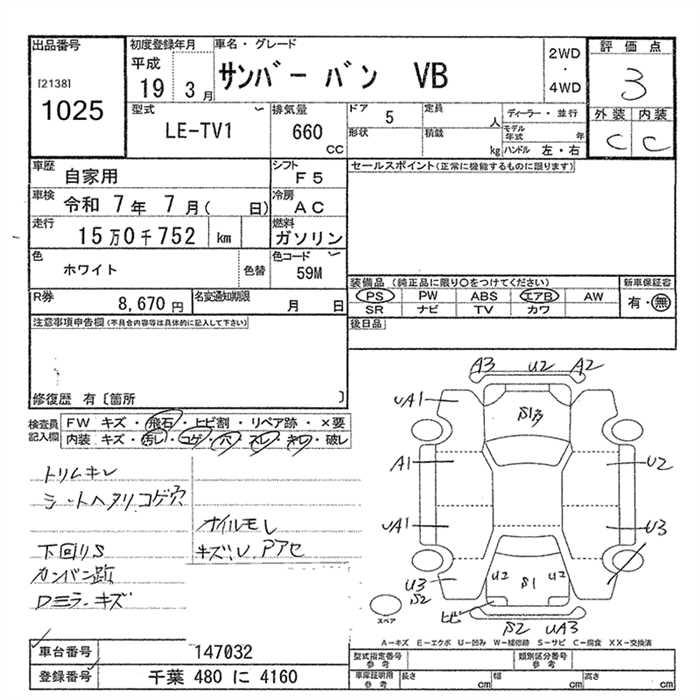 出品番号
[2138]
1025
初度登録年月
平成
19 3月
車名・グレード
サンバー バン VB
2WD
・
4WD
評価点
3
外装 内装
C C
型式
LE-TV1
排気量
660
CC
ドア 5
形状
定員
人
積載
kg
ディーラー・並行
モデル年式 年
ハンドル 左・右
車歴
自家用
シフト
F5
車検
令和 7年 7月( 日)
冷房
AC
走行
15万0千752 km
燃料
ガソリン
色
ホワイト
色替
色コード
59M
R券
8,670円
名変通知期限
月 日
セールスポイント(正常に機能するものに限ります)
装備品(純正品に限り○をつけてください)
新車保証書
PS PW ABS エアB AW
SR ナビ TV カワ
有・無
後日品
注意事項申告欄(不具合内容等は具体的に記入して下さい)
修復歴 有〔箇所 〕
検査員記入欄
FW キズ・飛石・ヒビ割・リペア跡・×要
内装 キズ・汚レ・コゲ・穴・スレ・キレ・破レ
トリムキレ
シートヘタリコゲ穴
オイルモレ
下回りS
キズ、U、Pアセ
カンバン跡
Dミラーキズ
A3 U2 A2
UA1
S1
A1
U2
UA1
U3
U3
S2
U2 S1 U2
ヒビ
S2 UA3
スペア
A-キズ E-エクボ U-凹み W-補修跡 S-サビ C-腐食 XX-交換済
車台番号
147032
登録番号
千葉 480 に 4160
型式指定番号
参考
類別区分番号
参考
車庫証明用
参考
長さ cm 幅 cm 高さ cm